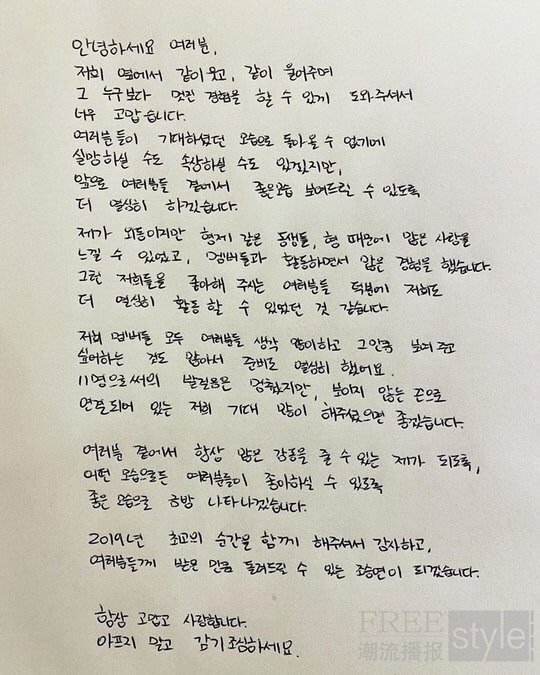 안녕하세요 여러분,
저희 옆에서 같이 웃고, 같이 울어주며
그 누구보다 멋진 경험을 할 수 있게 도와주셔서
너무 고맙습니다.
여러분들이 기대하셨던 모습으로 돌아올 수 없기에
실망하실 수도 속상하실 수도 있겠지만,
앞으로 여러분들 곁에서 좋은모습 보여드릴 수 있도록
더 열심히 하겠습니다.
제가 외동이지만 형제 같은 동생들, 형 때문에 많은 사랑을
느낄 수 있었고, 멤버들과 활동하면서 많은 경험을 했습니다.
그런 저희들을 좋아해 주시는 여러분들 덕분에 저희도
더 열심히 활동 할 수 있었던 것 같습니다.
저희 멤버들 모두 여러분들 생각 많이하고 그만큼 보여 주고
싶어하는 것도 많아서 준비도 열심히 했어요.
11명으로써의 발걸음은 멈췄지만, 보이지 않는 끈으로
연결되어 있는 저희 기대 많이 해주셨으면 좋겠습니다.
여러분 곁에서 항상 많은 감동을 줄 수 있는 제가 되도록,
어떤 모습으로든 여러분들이 좋아하실 수 있도록
좋은 모습으로 금방 나타나겠습니다.
2019년 최고의 순간을 함께 해주셔서 감사하고,
여러분들께 받은 만큼 돌려드릴 수 있는 조승연이 되겠습니다.
항상 고맙고 사랑합니다.
아프지 말고 감기조심하세요.
FREE style
潮流播报